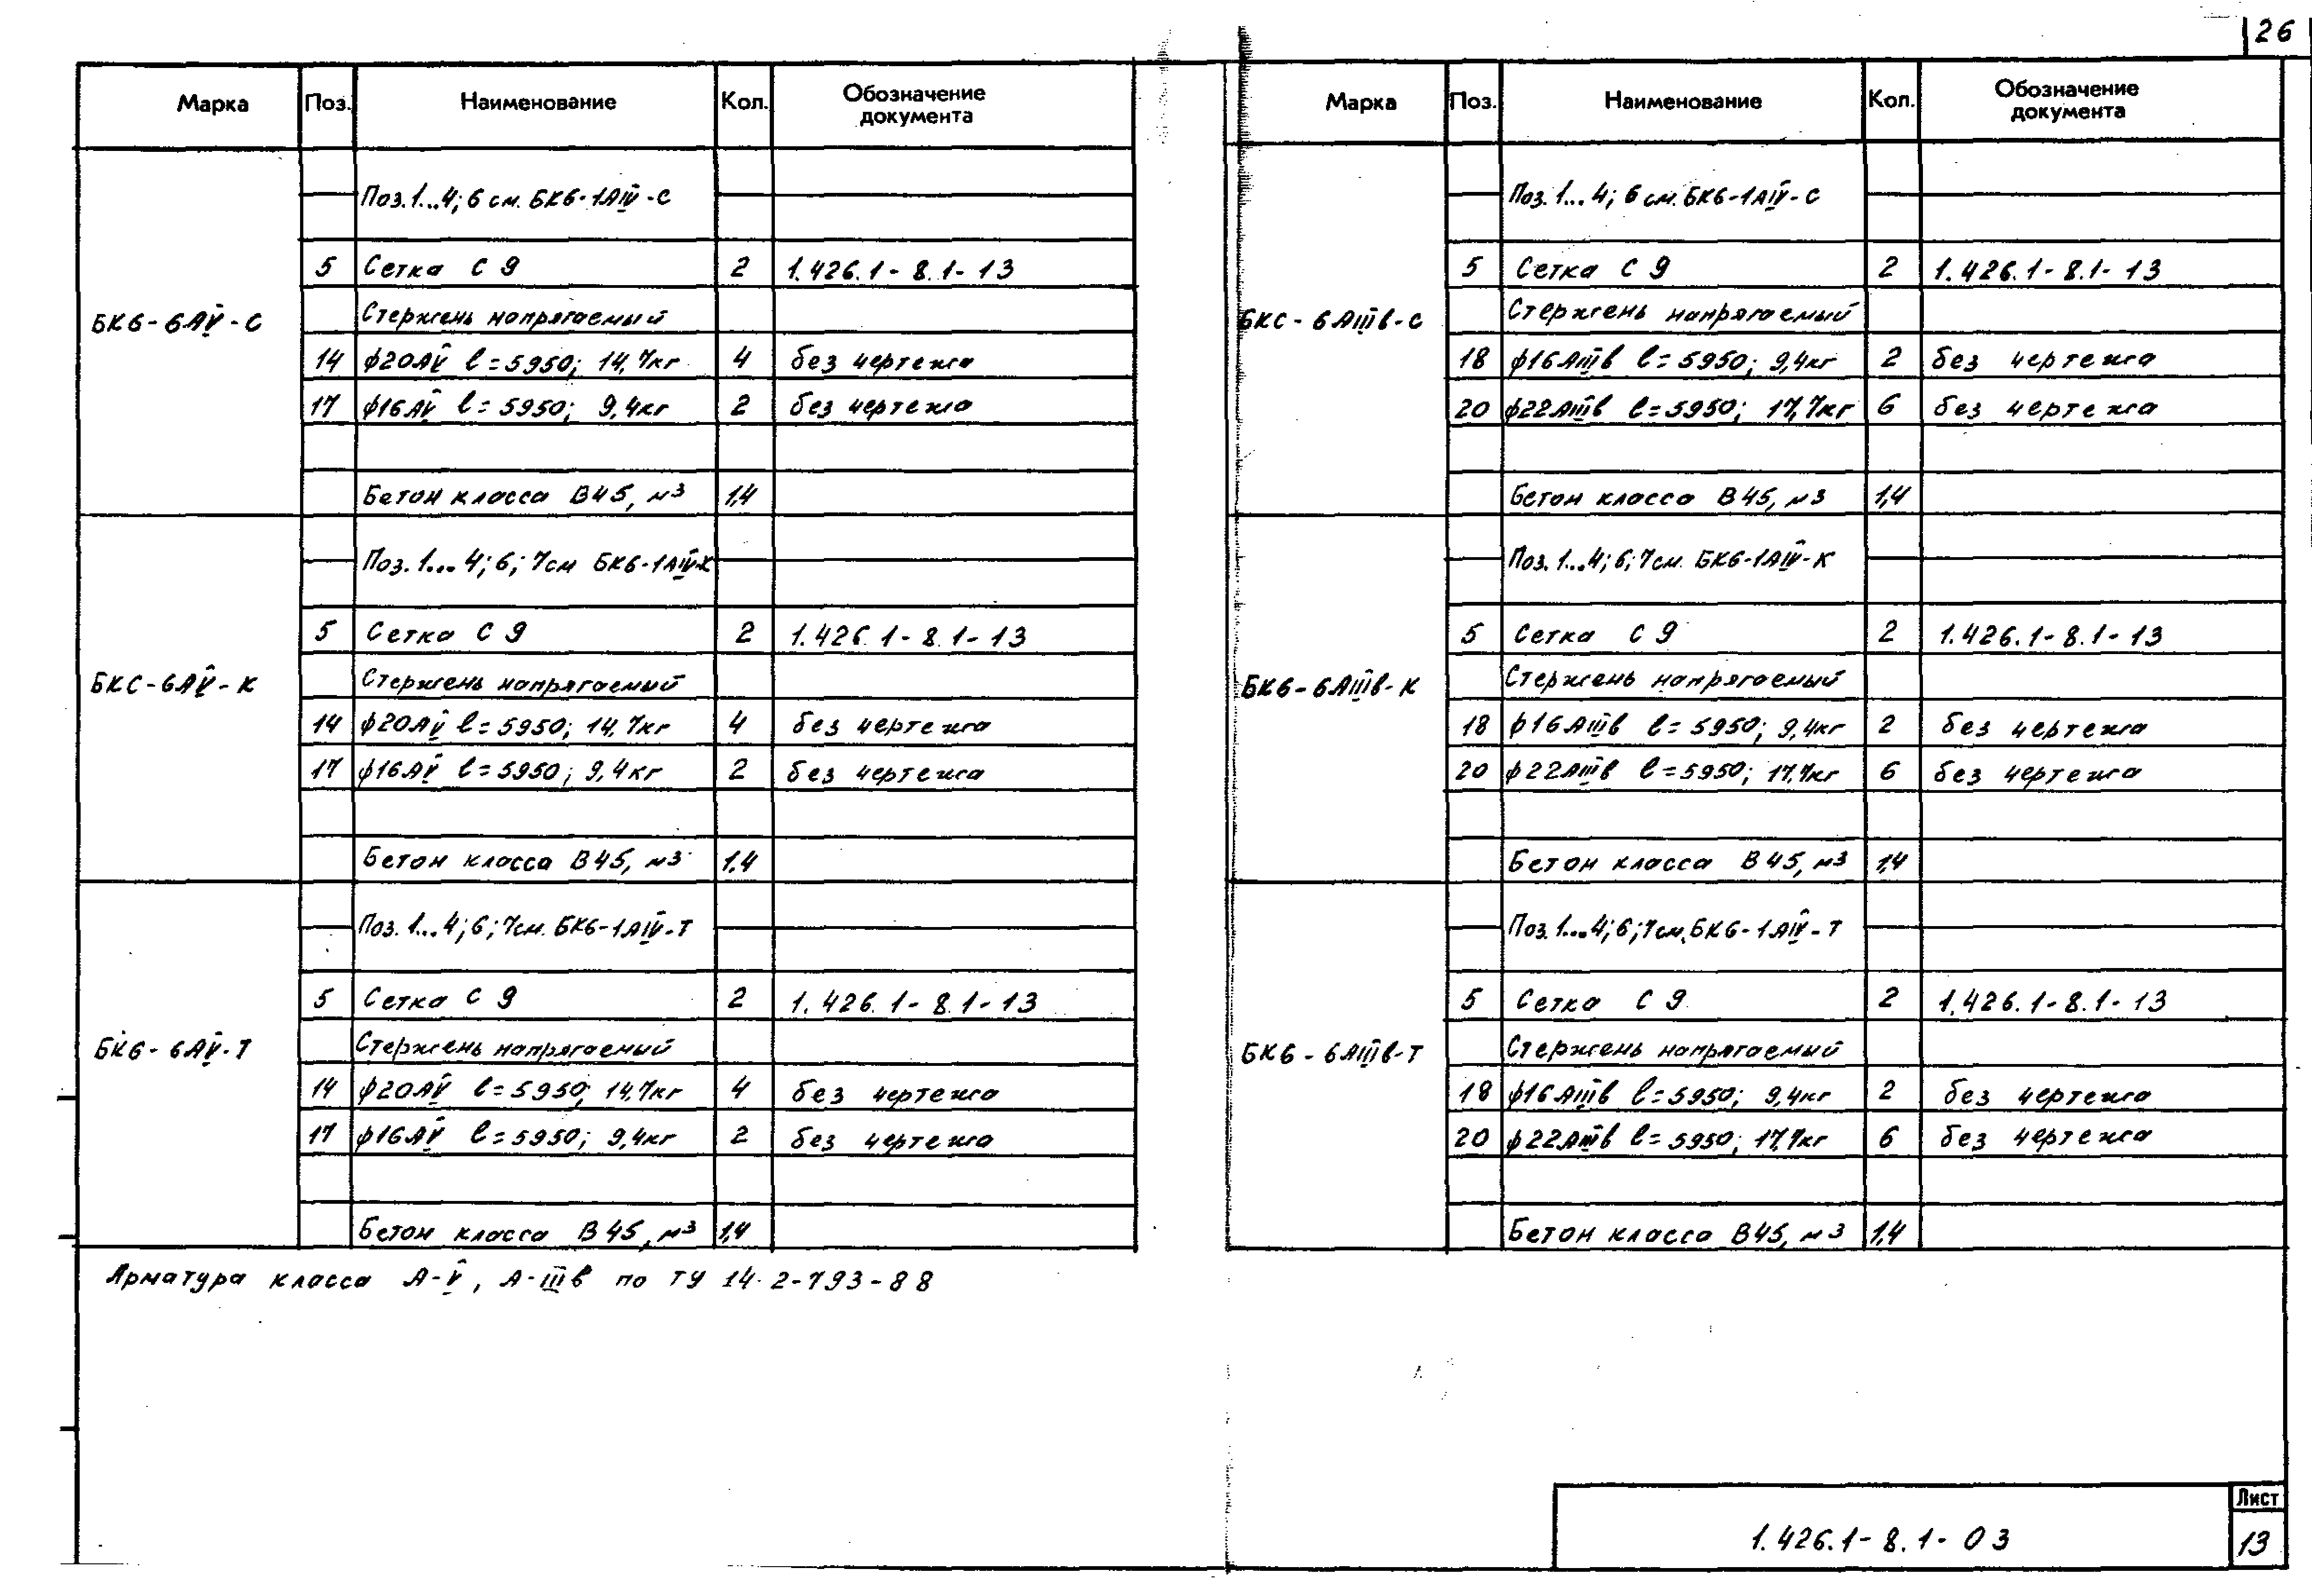 26
Марка Поз. Наименование Кол. Обозначение документа
БК6-6АV-С
Поз.1...4; 6 см. БК6-1АIV-С
5 Сетка С 9 2 1.426.1-8.1-13
Стержень напрягаемый
14 ф20АV l=5950; 14,7кг 4 без чертежа
17 ф16АV l=5950; 9,4кг 2 без чертежа
Бетон класса В45, м3 1,4
БКС-6АV-К
Поз.1...4; 6; 7см БК6-1АIV-К
5 Сетка С 9 2 1.426.1-8.1-13
Стержень напрягаемый
14 ф20АV l=5950; 14,7кг 4 без чертежа
17 ф16АV l=5950; 9,4кг 2 без чертежа
Бетон класса В45, м3 1,4
БК6-6АV-Т
Поз.1...4; 6; 7см. БК6-1АIV-Т
5 Сетка С 9 2 1.426.1-8.1-13
Стержень напрягаемый
14 ф20АV l=5950; 14,7кг 4 без чертежа
17 ф16АV l=5950; 9,4кг 2 без чертежа
Бетон класса В45, м3 1,4
Арматура класса А-V, А-IIIв по ТУ 14-2-793-88
Марка Поз. Наименование Кол. Обозначение документа
БКС-6АIIIв-С
Поз.1...4; 6 см. БК6-1АIV-С
5 Сетка С 9 2 1.426.1-8.1-13
Стержень напрягаемый
18 ф16АIIIв l=5950; 9,4кг 2 без чертежа
20 ф22АIIIв l=5950; 17,7кг 6 без чертежа
Бетон класса В45, м3 1,4
БК6-6АIIIв-К
Поз.1...4; 6; 7см. БК6-1АIV-К
5 Сетка С 9 2 1.426.1-8.1-13
Стержень напрягаемый
18 ф16АIIIв l=5950; 9,4кг 2 без чертежа
20 ф22АIIIв l=5950; 17,7кг 6 без чертежа
Бетон класса В45, м3 1,4
БК6-6АIIIв-Т
Поз.1...4; 6; 7см. БК6-1АIV-Т
5 Сетка С 9 2 1.426.1-8.1-13
Стержень напрягаемый
18 ф16АIIIв l=5950; 9,4кг 2 без чертежа
20 ф22АIIIв l=5950; 17,7кг 6 без чертежа
Бетон класса В45, м3 1,4
1.426.1-8.1-03
Лист
13